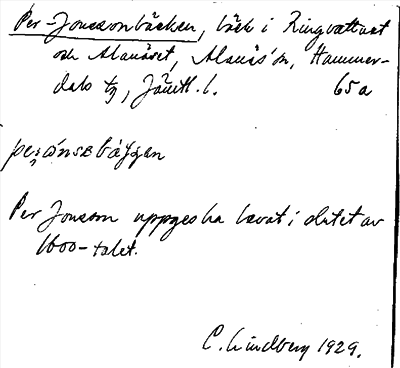 Per-Jonssonbäcken, bäck i Ringvattnet
och Alanäset, Alanäs' sn, Hammer-
dals tg, Jämtl. l. 65a
Per Jonsson uppges ha levat i slutet av
1600-talet.
C. Lindberg 1929.